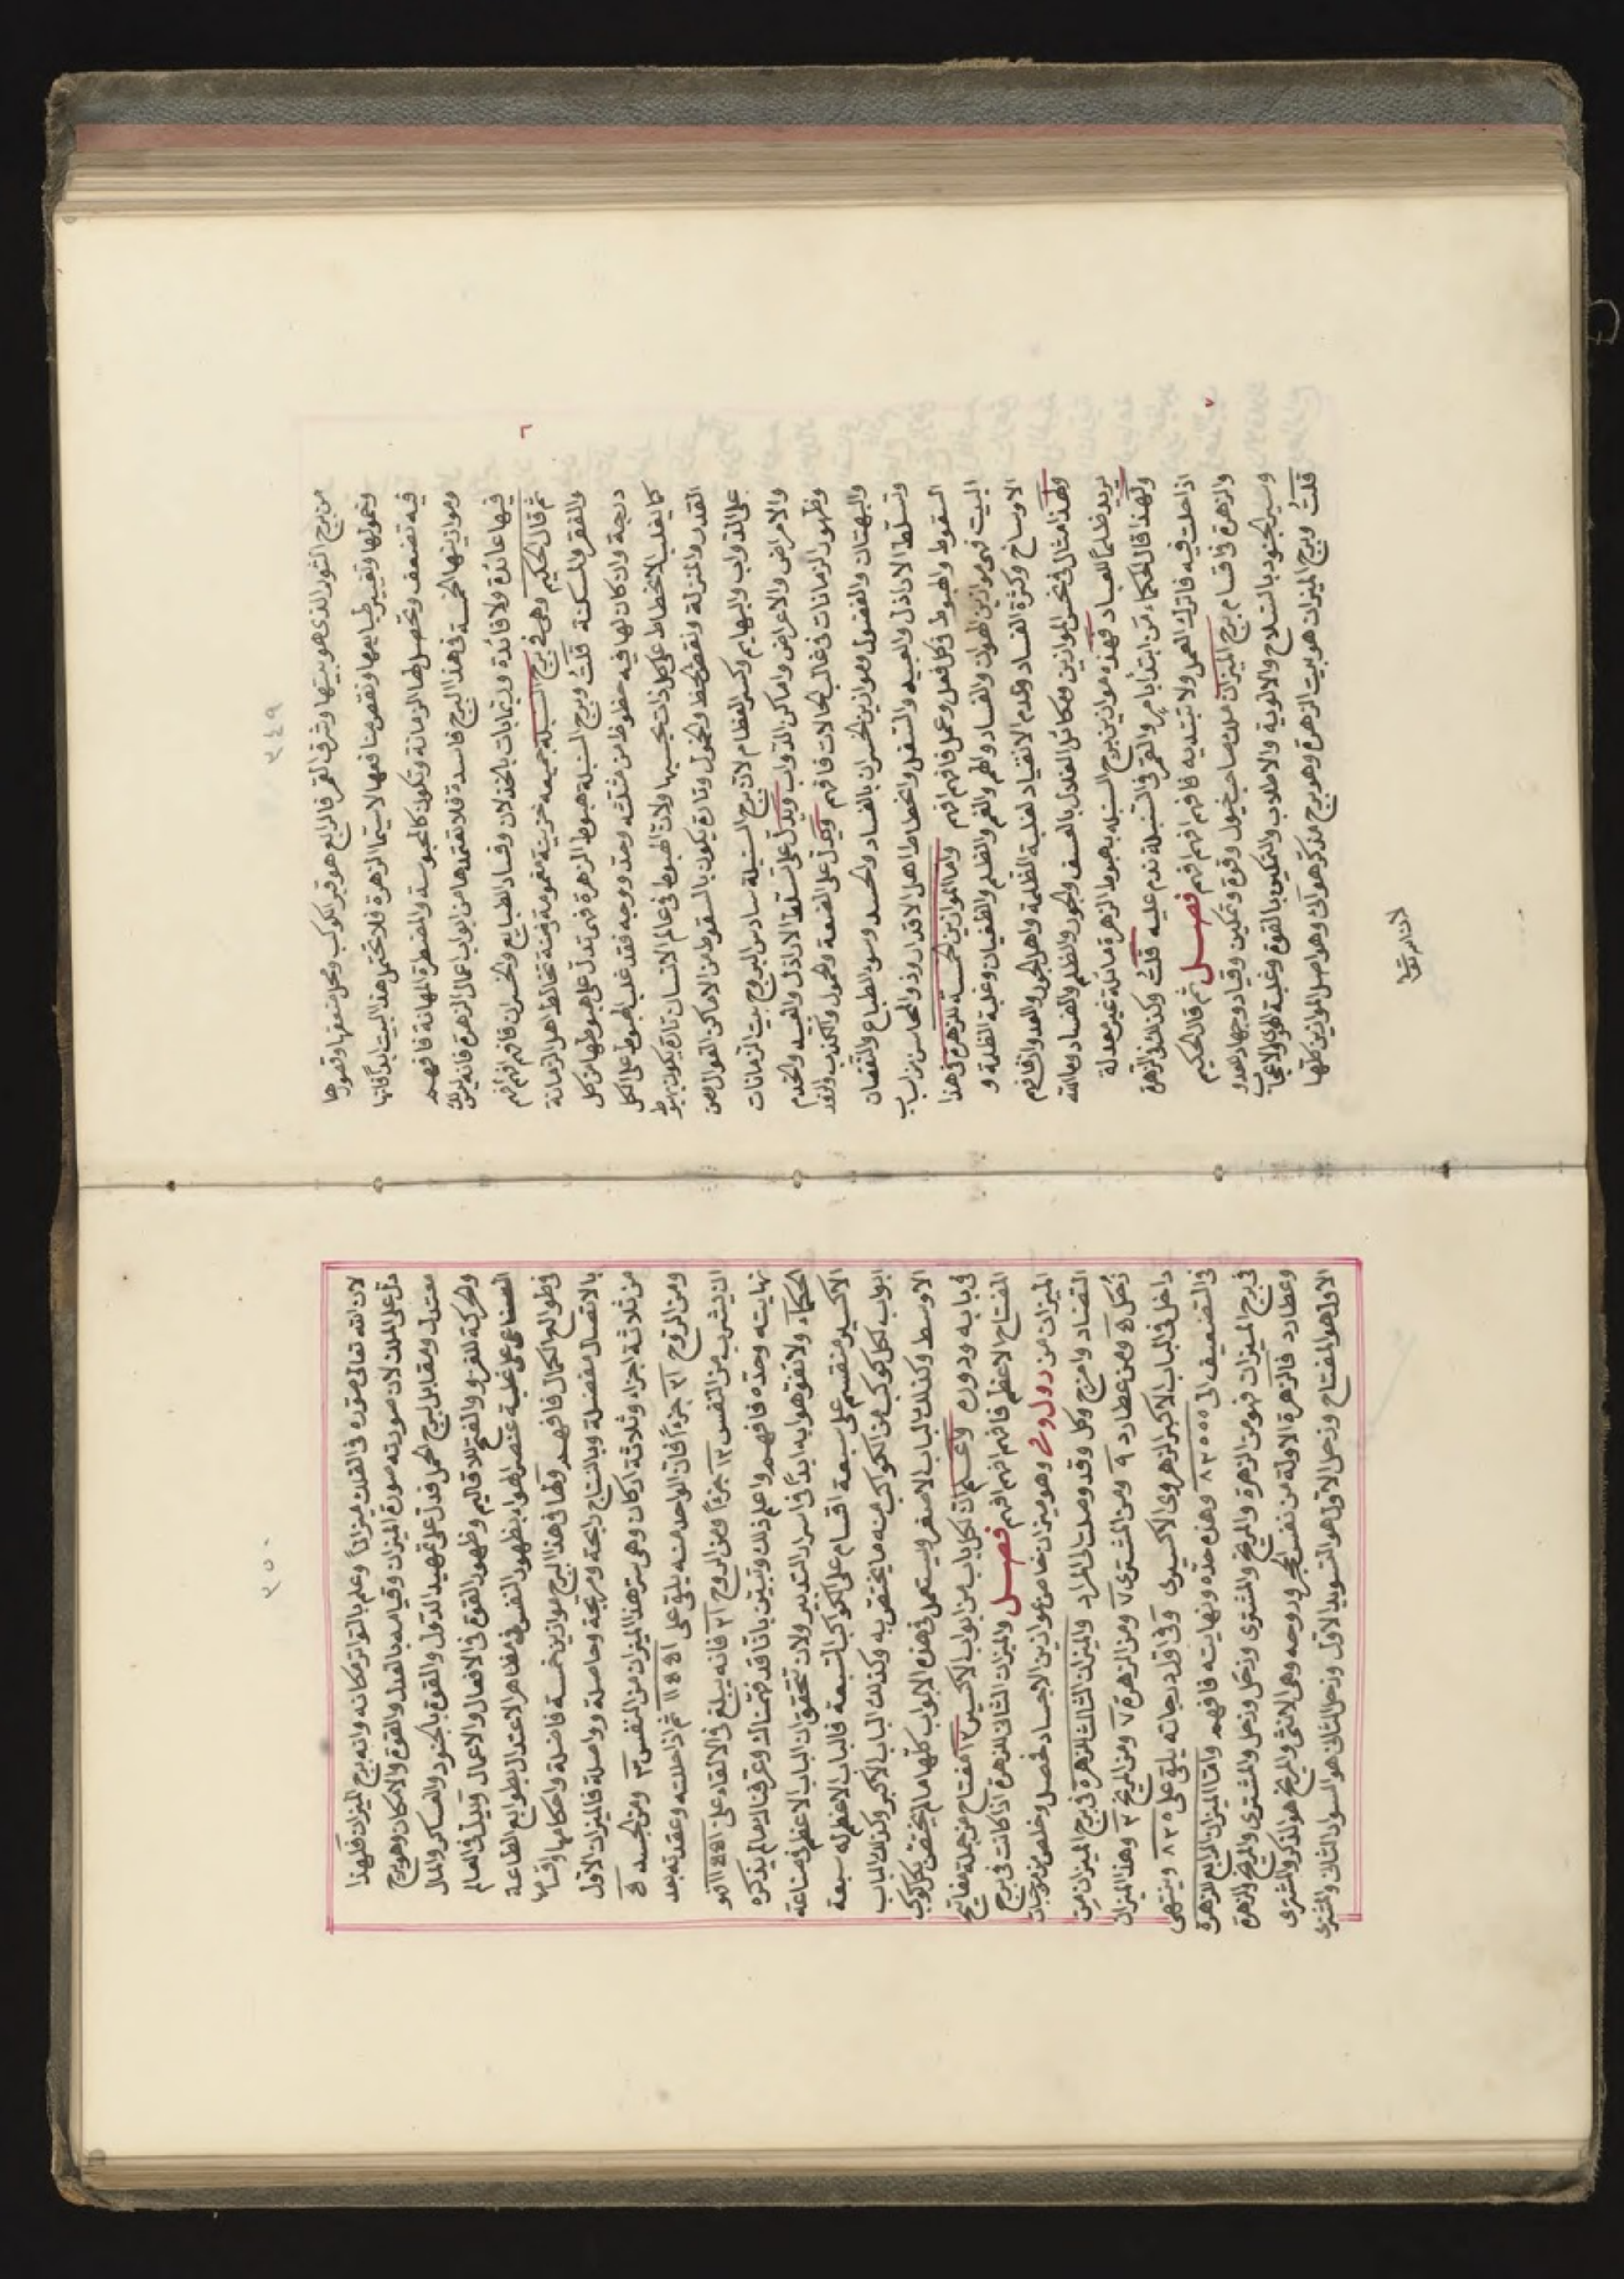 ٣٤٩
من برج الثور الذى هو بيتها وشرف القمر فالرابع هو قبر الكوكب ومحل ضعفها وقصورها
وخمولها وتغيير طبايعها ونقص منافعها لاسيما الزهرة فلا تحتمل هذا البيت ابدًا فانها
فيه تضعف وتحصل لها الزمانة وتكون كالمحبوسة والمضطرة المهانة فافهم
وموازينها الخمسة فى هذا البرج فاسدة فلا تقتمدها من ابواب اعمال الزهرة فانه ليس لك
فيها عائدة ولا فائدة ونهايات بالخذلان وفساد الطبايع والخسران فافهم افهم افهم
ثم قال الحكيم وهى فى برج السنبلة جميعه حزينة مغمومة وقنة تخالط اهل الزمانة ٦
والفقر والمسكنة قلت وبرج السنبلة هبوط الزهرة فهى تدل على هبوطها من كل
درجة وان كان لها فيه حظوظ من مثلثه وحد ووجه فقد غلب الهبوط على الكل
كما يغلب الانحطاط على كل ذات بحسبها ولان الهبوط فى عالم الانسان تارة يكون بهبوط
القدر والمنزلة ونقص الحظ والخمول وتارة يكون بالسقوط من الاماكن العوال ومن
على الدواب والبهايم وكسر العظام لان برج السنبلة سادس البروج بيت الزمانات
والامراض والاعراض واماكن الدواب ويدل على تسلط الاراذل والعبيد والخدم
وظهور الزمانات فى غالب الحالات فافهم ويدل على الضعة والخمول والكذب والنقد
والبهتان والفضول وموازين الخسران بالفساد والحسد وسوء الطباع والنقصان
وتسلط الاراذل والعبيد والسفل وانحطاط اهل الاقدار وذو المحاسن باسباب
السقوط والهبوط فى كل فعل وعمل فافهم افهم واما الموازين الخمسة للزهرة فى هذا
البيت فهى موازين الهوان والفساد والهم والغم والظلم والطغيان وغلبة الظلمة و
الاوساخ وكثرة الفساد وعدم الانقياد لغلبة الظلمة واهل الجور والعدوان فافهم
ولهذا مثال فى نحس الموازين ومكائل العدل بالعسف والجور والظلم والفساد وما الله
يريد ظلمًا للعباد فهذه موازين برج السنبلة بهبوط الزهرة مائلة غير معدلة
ولهذا قال الحكماء من ابتدأ بامر والقمر فى السنبلة ندم عليه قلت وكذلك الزهرة
اذا حلت فيه فاترك العمل ولا تبتديه فافهم افهم افهم فصل ثم قال الحكيم ٧
والزهرة فاقسام برج الميزان ملك صاحب خيول وقوة وتمكين وقياد وجهاد هدو
وسير الجنود بالسلاح والالوية والاطلاب والتمكين بالقوة وغلبة الهوى والاعجاب
قلت وبرج الميزان هو بيت الزهرة وهو برج مذكر هوائى وهو اصل الموازين كلها
لان الله تعا
٣٥٠
لان الله تعالى صوره فى الفلك ميزانًا وعلم بالتواتر مكانه وانه برج الميزان فلهذا
دل على الملك لان صورته صورة الميزان وقيامه بالعدل والقوة والامكان وهو برج
معتدل ومقابل برج الحمل فدل على تمهيد الدول والقوة بالجنود والعساكر والمال
والحركة للغزو والفتح للاقاليم وظهور القوى فى الافعال والاعمال ويدل فى العالم
الصناعى على غلبة عنصر الهواء بظهور النفوس فى مظاهر الاعتدال بطوابع الطاعة
وطوالع الكمال فافهم ولها فى هذا البرج موازين خمسة فاضلة واحكامها واقسامها
بالاتصال مفصلة وبالنتاج رابحة ومربحة وحاصلة وواصلة فالميزان الاول
من ثلاثة اجزاء وثلاثة اركان وهى سر هذا الميزان من النفس ٣ ومن الجسد ٥
ومن الروح ٢١ جزءًا فان الواحد منه يلقى على ١١٥٥١ ثم اذا حللته وعقدته بعد
ان يشرب من النفس ١٢ جزءًا ومن الروح ٢١ فانه يبلغ فى الالقاء على ١١٥٥١ وهو
نهايته وحده فافهم واعلم ذلك وتبين باننا قد فهمناك وعرفناك ما لم يذكره
الحكماء ولا تفوهوا به ابدًا فى اسرار التدبير ولان تتحقق ان الباب الاعظم فى صناعة
الاكسير منقسم على سبعة اقسام على الكواكب السبعة فالباب الاعظم له سبعة
ابواب لكل كوكب من الكواكب منه ما يختص به وكذلك الباب الاكبر وكذلك الباب
الاوسط وكذلك الباب الاصغر ويستعمل فى هذه الابواب كلها ما لم يختص بكل كوكب
فى بابه ودوره واعلم ان لكل باب من ابواب الاكسير ١٢ مفتاح من جملة مفاتيح
المفتاح الاعظم فافهم افهم افهم فصل والميزان الثانى للزهرة اذا كانت فى برج
الميزان من دول وحى وهو ميزان خاص من موازين الاجساد فحصل وخلص من نوجبات
التضاد وامزج وكل وقد وصلت المراد والميزان الثالث للزهرة فى برج الميزان من
زحل ٥ ومن عطارد ٩ ومن المشترى ٧ ومن الزهرة ٧ ومن المريخ ٣ وهذا الميزان
داخل فى الباب الاكبر الزهروى الاكسيرى وفى اول درجاته يلقى على ٨٣٥ وينتهى
فى التضعيف الى ٨٣٥٥٥ وهذه حده ونهايته فافهم واما الميزان الرابع للزهرة
فى برج الميزان فهو من الزهرة والمريخ والمشترى وزحل وزحل والمشترى والمريخ والزهرة
وعطارد فالزهرة الاولة من نفس الحجر وروحه وهى الانثى والمريخ هو الذكر والمشترى
الاول هو المفتاح وزحل الاول هو التسويد الاول وزحل الثانى هو السواد الثانى والمشترى